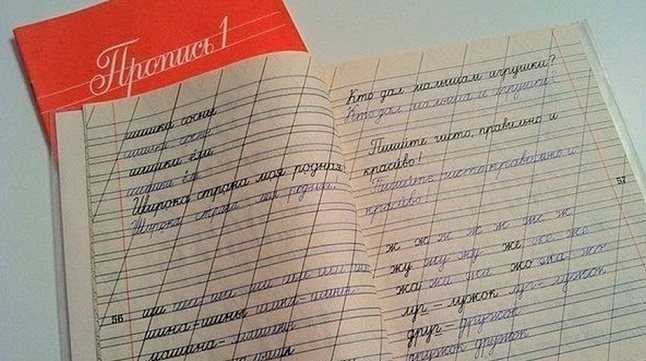 Пропись 1
шишки сосны
шишки сосны
шишки ели
шишки ели
Широка страна моя родная!
Широка страна моя родная!
ши ши ши ши ши ши ши
56
шина – шины шина – шины
машина – машины
Кто дал малышам игрушки?
Кто дал малышам игрушки?
Пишите чисто, правильно и
красиво!
Пишите чисто, правильно и
красиво!
57
ж ж ж ж ж ж ж
жу жу жу же же же
жа жа жа жо жа жо
луг – лужок луг – лужок
друг – дружок
дружок дружок